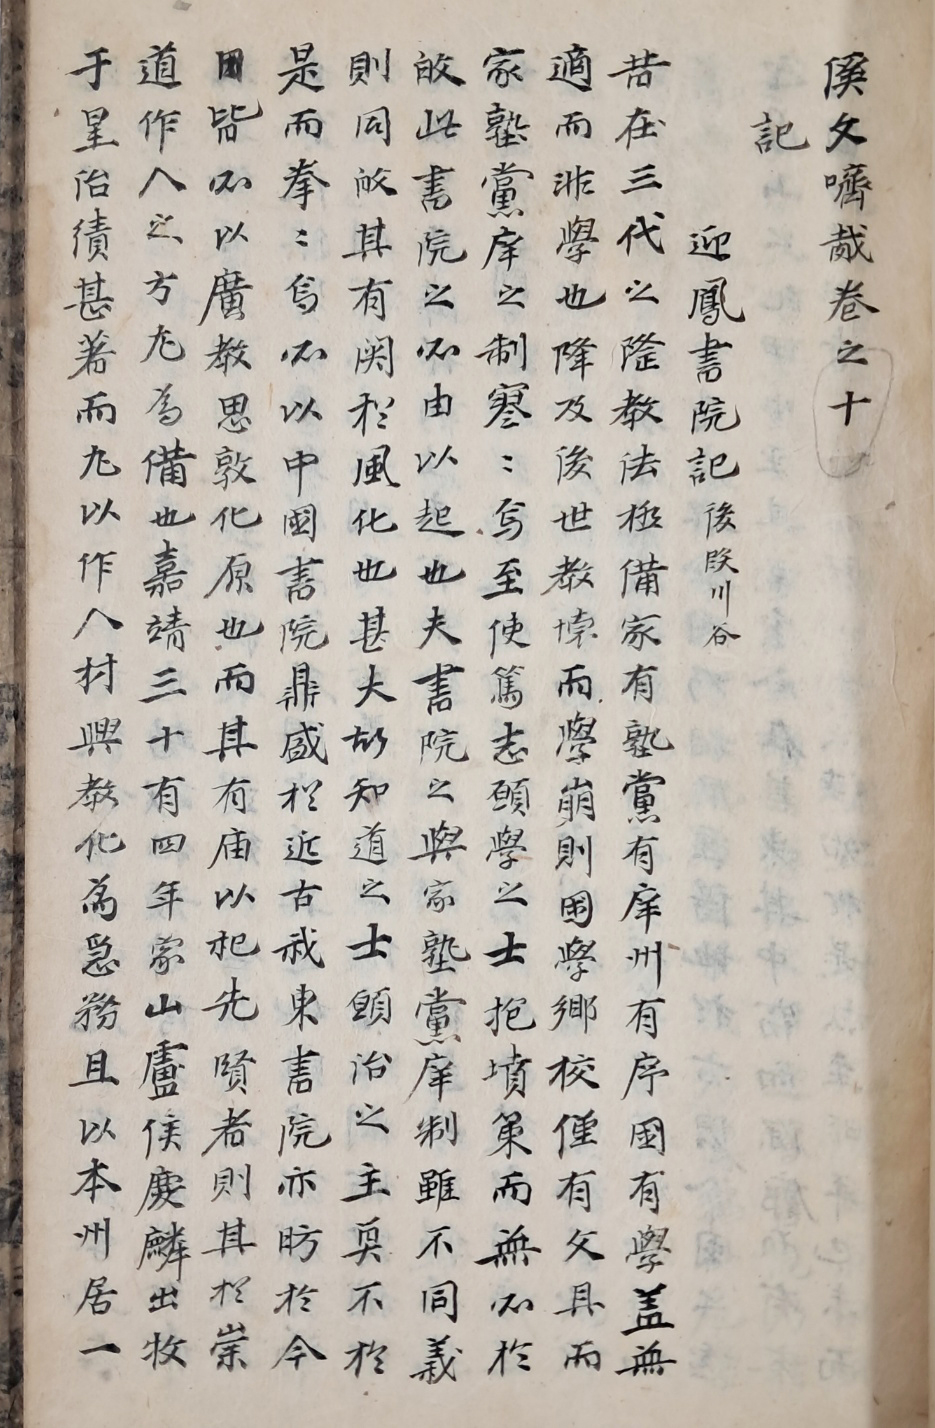 溪文嚌胾卷之十
記
迎鳳書院記 後改川谷
昔在三代之隆教法極備家有塾黨有庠州有序國有學盖無
適而非學也降及後世教壞而學崩則國學鄉校僅有文具而
家塾黨庠之制寥〻焉至使篤志願學之士抱墳策而無所於
故此書院之所由以起也夫書院之與家塾黨庠制雖不同義
則同故其有関於風化也甚大故知道之士願治之主莫不於
是而拳〻焉所以中國書院鼎盛於近古我東書院亦昉於今
日皆所以廣教思敦化原也而其有庙以祀先賢者則其於崇
道作人之方尤為備也嘉靖三十有四年家山盧侯慶麟出牧
于星治績甚著而尤以作人材興教化為急務且以本州居一